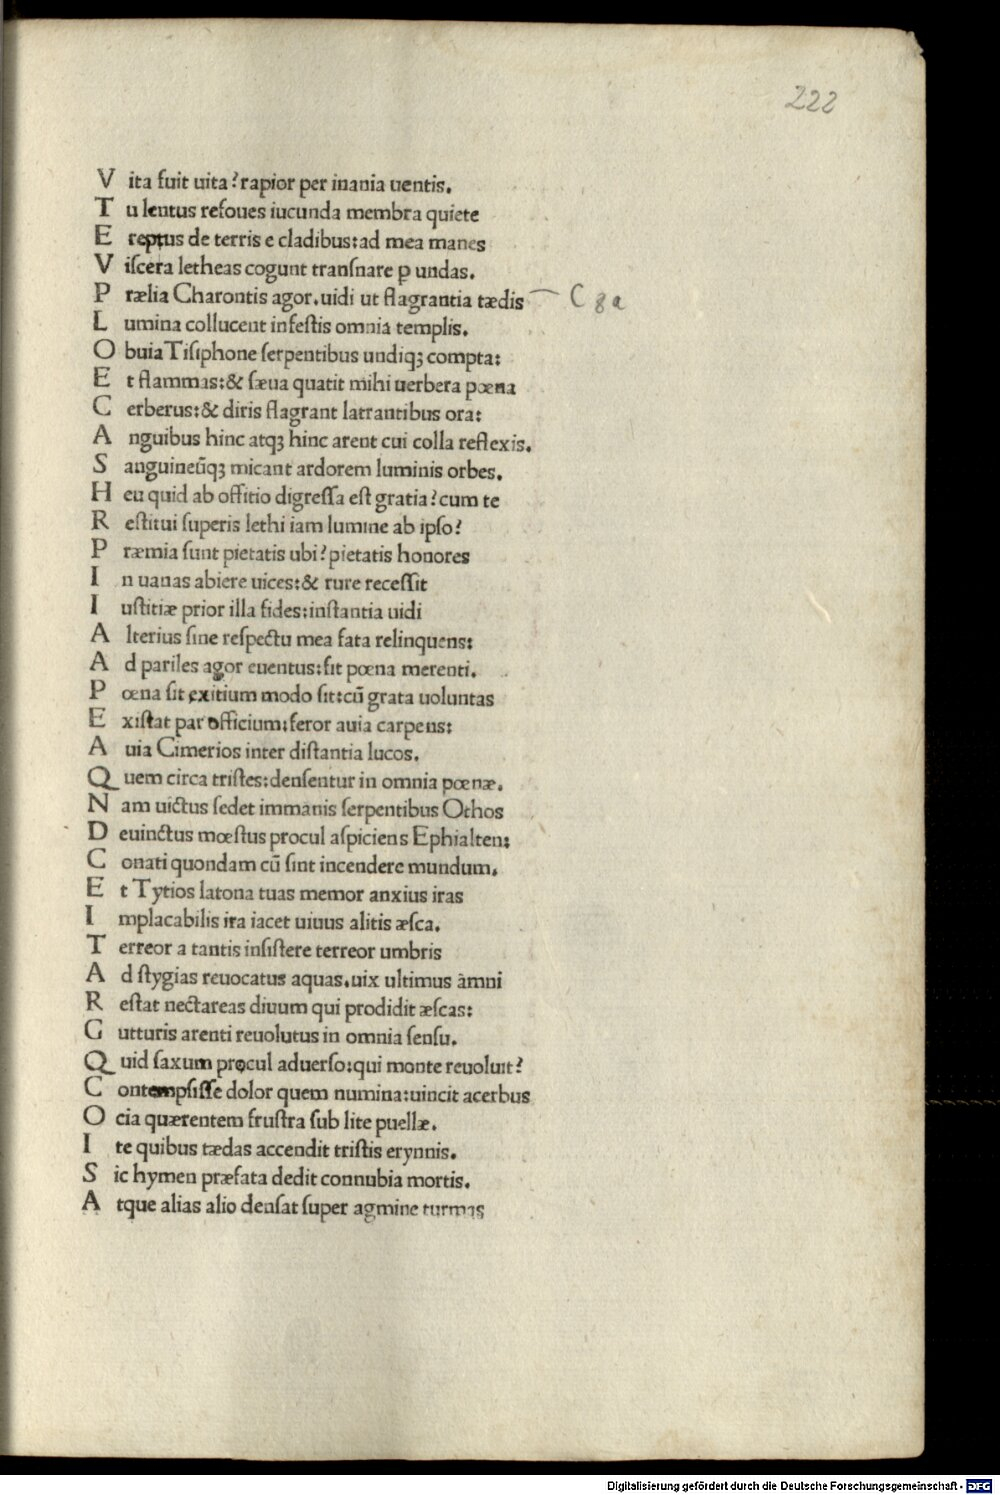 222
V ita fuit uita? rapior per inania uentis.
T u lentus refoues iucunda membra quiete
E reptus de terris e cladibus: ad mea manes
V iſcera letheas cogunt tranſnare ꝑ undas.
P rælia Charontis agor. uidi ut flagrantia tædis — C 8 a
L umina collucent infeſtis omnia templis.
O buia Tiſiphone ſerpentibus undiqꝫ compta:
E t flammas: & ſæua quatit mihi uerbera pœna
C erberus: & diris flagrant latrantibus ora:
A nguibus hinc atqꝫ hinc arent cui colla reflexis.
S anguineūqꝫ micant ardorem luminis orbes.
H eu quid ab offitio digreſſa eſt gratia? cum te
R eſtitui ſuperis lethi iam lumine ab ipſo?
P ræmia ſunt pietatis ubi? pietatis honores
I n uanas abiere uices: & rure receſſit
I uſtitiæ prior illa fides: inſtantia uidi
A lterius ſine reſpectu mea fata relinquens:
A d pariles agor euentus: fit pœna merenti.
P œna ſit exitium modo ſit: cū grata uoluntas
E xiſtat par officium: feror auia carpens:
A uia Cimerios inter diſtantia lucos.
Q uem circa triſtes: denſentur in omnia pœnæ.
N am uictus ſedet immanis ſerpentibus Othos
D euinctus mœſtus procul aſpiciens Ephialten:
C onati quondam cū ſint incendere mundum.
E t Tytios latona tuas memor anxius iras
I mplacabilis ira iacet uiuus alitis æſca.
T erreor a tantis inſiſtere terreor umbris
A d ſtygias reuocatus aquas. uix ultimus āmni
R eſtat nectareas diuum qui prodidit æſcas:
G utturis arenti reuolutus in omnia ſenſu.
Q uid ſaxum procul aduerſo: qui monte reuoluit?
C ontempſiſſe dolor quem numina: uincit acerbus
O cia quærentem fruſtra ſub lite puellæ.
I te quibus tædas accendit triſtis erynnis.
S ic hymen præfata dedit connubia mortis.
A tque alias alio denſat ſuper agmine turmas
Digitalisierung gefördert durch die Deutsche Forschungsgemeinschaft - DFG